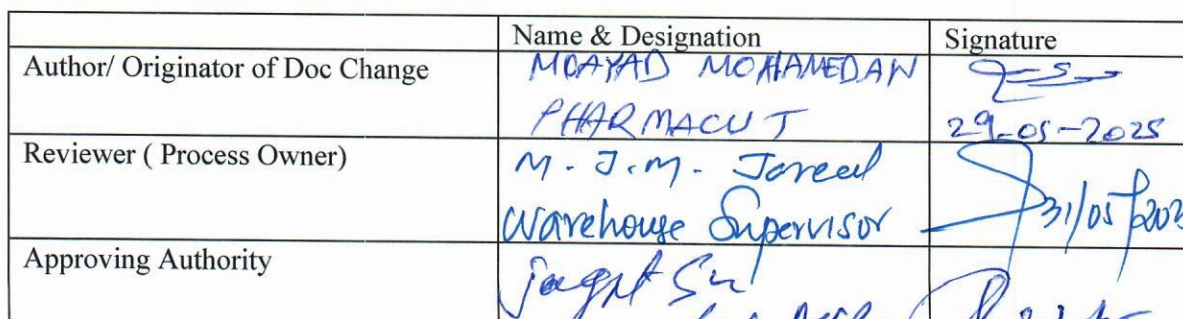 Name & Designation Signature
Author/ Originator of Doc Change MOAYAD MOHAMEDAN
PHARMACUT 29-05-2025
Reviewer ( Process Owner) M. J. M. Jareed
Warehouse Supervisor 31/05/202
Approving Authority